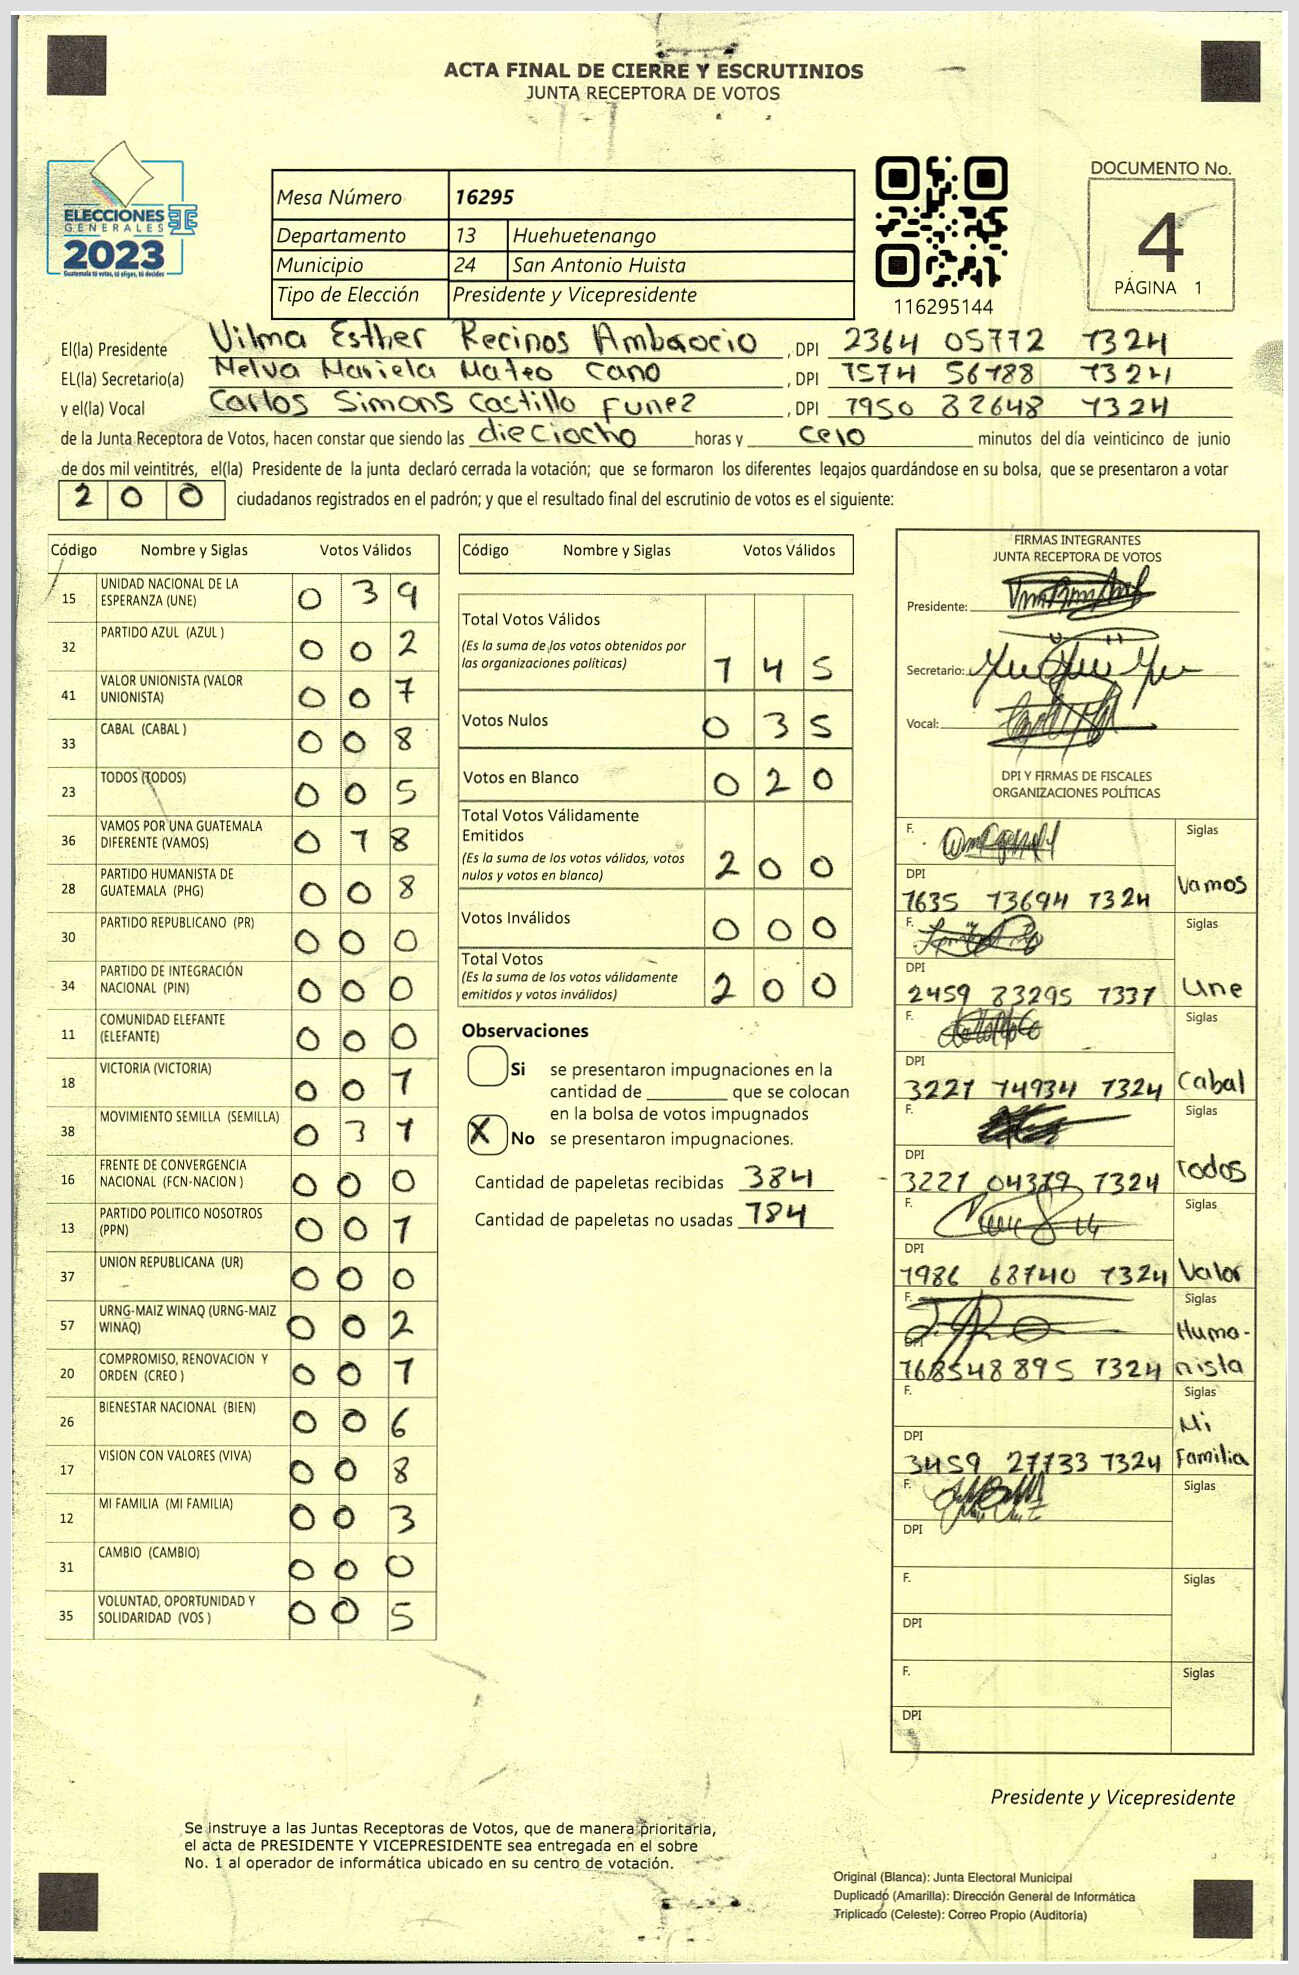 ACTA FINAL DE CIERRE Y ESCRUTINIOS
JUNTA RECEPTORA DE VOTOS
ELECCIONES
GENERALES
2023
Guatemala tú votas, tú eliges, tú decides
Mesa Número 16295
Departamento 13 Huehuetenango
Municipio 24 San Antonio Huista
Tipo de Elección Presidente y Vicepresidente
116295144
DOCUMENTO No.
4
PÁGINA 1
El(la) Presidente Vilma Esther Recinos Ambrocio , DPI 2364 05112 1324
EL(la) Secretario(a) Melva Mariela Mateo Cano , DPI 1574 56188 1324
y el(la) Vocal Carlos Simons Castillo Funez , DPI 1950 82648 1324
de la Junta Receptora de Votos, hacen constar que siendo las dieciocho horas y cero minutos del día veinticinco de junio
de dos mil veintitrés, el(la) Presidente de la junta declaró cerrada la votación; que se formaron los diferentes legajos guardándose en su bolsa, que se presentaron a votar
200 ciudadanos registrados en el padrón; y que el resultado final del escrutinio de votos es el siguiente:
Código Nombre y Siglas Votos Válidos
15 UNIDAD NACIONAL DE LA ESPERANZA (UNE) 0 3 9
32 PARTIDO AZUL (AZUL ) 0 0 2
41 VALOR UNIONISTA (VALOR UNIONISTA) 0 0 7
33 CABAL (CABAL ) 0 0 8
23 TODOS (TODOS) 0 0 5
36 VAMOS POR UNA GUATEMALA DIFERENTE (VAMOS) 0 1 8
28 PARTIDO HUMANISTA DE GUATEMALA (PHG) 0 0 8
30 PARTIDO REPUBLICANO (PR) 0 0 0
34 PARTIDO DE INTEGRACIÓN NACIONAL (PIN) 0 0 0
11 COMUNIDAD ELEFANTE (ELEFANTE) 0 0 0
18 VICTORIA (VICTORIA) 0 0 1
38 MOVIMIENTO SEMILLA (SEMILLA) 0 3 1
16 FRENTE DE CONVERGENCIA NACIONAL (FCN-NACION ) 0 0 0
13 PARTIDO POLITICO NOSOTROS (PPN) 0 0 1
37 UNION REPUBLICANA (UR) 0 0 0
57 URNG-MAIZ WINAQ (URNG-MAIZ WINAQ) 0 0 2
20 COMPROMISO, RENOVACION Y ORDEN (CREO ) 0 0 1
26 BIENESTAR NACIONAL (BIEN) 0 0 6
17 VISION CON VALORES (VIVA) 0 0 8
12 MI FAMILIA (MI FAMILIA) 0 0 3
31 CAMBIO (CAMBIO) 0 0 0
35 VOLUNTAD, OPORTUNIDAD Y SOLIDARIDAD (VOS ) 0 0 5
Código Nombre y Siglas Votos Válidos
Total Votos Válidos
(Es la suma de los votos obtenidos por
las organizaciones políticas) 1 4 5
Votos Nulos 0 3 5
Votos en Blanco 0 2 0
Total Votos Válidamente
Emitidos
(Es la suma de los votos válidos, votos
nulos y votos en blanco) 2 0 0
Votos Inválidos 0 0 0
Total Votos
(Es la suma de los votos válidamente
emitidos y votos inválidos) 2 0 0
Observaciones
Si se presentaron impugnaciones en la
cantidad de ________ que se colocan
en la bolsa de votos impugnados
X No se presentaron impugnaciones.
Cantidad de papeletas recibidas 384
Cantidad de papeletas no usadas 184
FIRMAS INTEGRANTES
JUNTA RECEPTORA DE VOTOS
Presidente:
Secretario:
Vocal:
DPI Y FIRMAS DE FISCALES
ORGANIZACIONES POLÍTICAS
F. Siglas
DPI Vamos
1635 13694 1324
F. Siglas
DPI Une
2459 83295 1331
F. Siglas
DPI Cabal
3221 14934 1324
F. Siglas
DPI Todos
3221 04319 1324
F. Siglas
DPI Valor
1986 68140 1324
F. Siglas
DPI Huma-
168548895 1324 nista
F. Siglas
Mi
DPI Familia
3459 27733 1324
F. Siglas
DPI
F. Siglas
DPI
F. Siglas
DPI
Presidente y Vicepresidente
Se instruye a las Juntas Receptoras de Votos, que de manera prioritaria,
el acta de PRESIDENTE Y VICEPRESIDENTE sea entregada en el sobre
No. 1 al operador de informática ubicado en su centro de votación.
Original (Blanca): Junta Electoral Municipal
Duplicado (Amarilla): Dirección General de Informática
Triplicado (Celeste): Correo Propio (Auditoría)